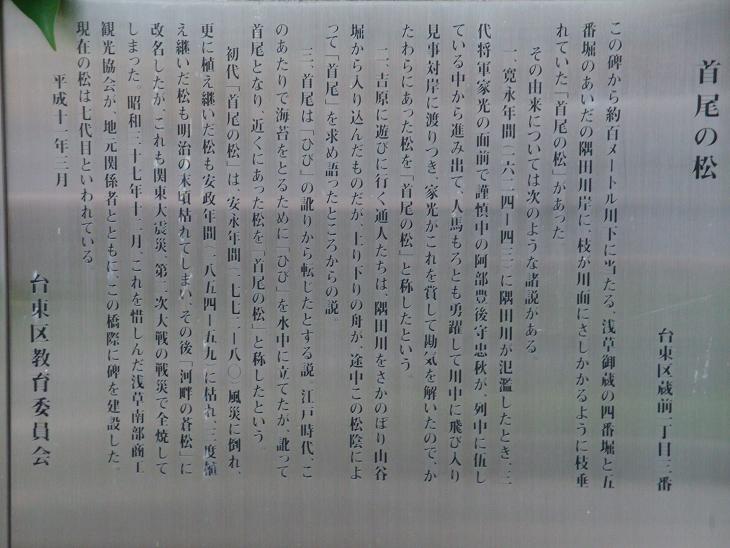 首尾の松
台東区蔵前一丁目三番
この碑から約百メートル川下に当たる、浅草御蔵の四番堀と五
番堀のあいだの隅田川岸に、枝が川面にさしかかるように枝垂
れていた「首尾の松」があった
その由来については次のような諸説がある。
一、寛永年間(一六二四ー四三)に隅田川が氾濫したとき、三
代将軍家光の面前で謹慎中の阿部豊後守忠秋が、列中に伍し
ている中から進み出て、人馬もろとも勇躍して川中に飛び入り
見事対岸に渡りつき、家光がこれを賞して勘気を解いたので、か
たわらにあった松を「首尾の松」と称したという。
二、吉原に遊びに行く通人たちは、隅田川をさかのぼり山谷
堀から入り込んだものだが、上り下りの舟が、途中この松陰によ
って「首尾」を求め語ったところからの説。
三、首尾は「ひび」の訛りから転じたとする説。江戸時代、こ
のあたりで海苔をとるために「ひび」を水中に立てたが、訛って
首尾となり、近くにあった松を「首尾の松」と称したという。
初代「首尾の松」は、安永年間(一七七二ー八〇)風災に倒れ、
更に植え継いだ松も安政年間(一八五四ー五九)に枯れ、三度植
え継いだ松も明治の末頃枯れてしまい、その後「河畔の蒼松」に
改名したが、これも関東大震災、第二次大戦の戦災で全焼して
しまった。昭和三十七年十二月、これを惜しんだ浅草南部商工
観光協会が、地元関係者とともに、この橋際に碑を建設した。
現在の松は七代目といわれている。
平成十一年三月
台東区教育委員会